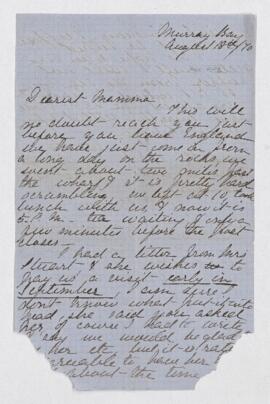 Murray Bay
August 18th/70
Dearest Mamma
This will
no doubt reach you just
before you leave England
we have just come in from
a long day on the rocks, we
went about two miles past
the wharf & it is pretty hard
scrambling we had our
lunch with us, & now it is
6 P.M. tea waiting & only a
few minutes before the post
closes —
I had a letter from Mrs
Stuart & she wishes to
pay us a visit early in
September I am sure I
dont know what but it is
had, she said you asked
her of course I had to write
& say we would be glad
her etc but it is rather
agreeable to have her
about the time